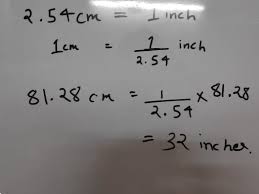 2.54 cm = 1 inch
1 cm = 1/2.54 inch
81.28 cm = 1/2.54 × 81.28
= 32 inches.